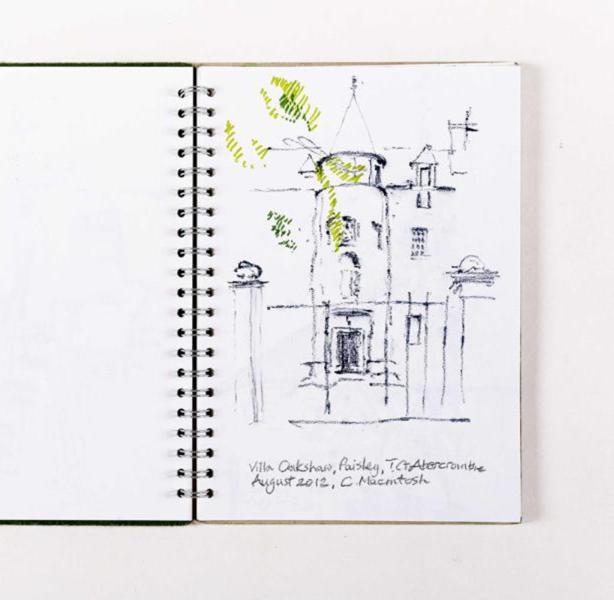 Villa Oakshaw, Paisley, T.G. Abercrombie
August 2012, C. Macintosh